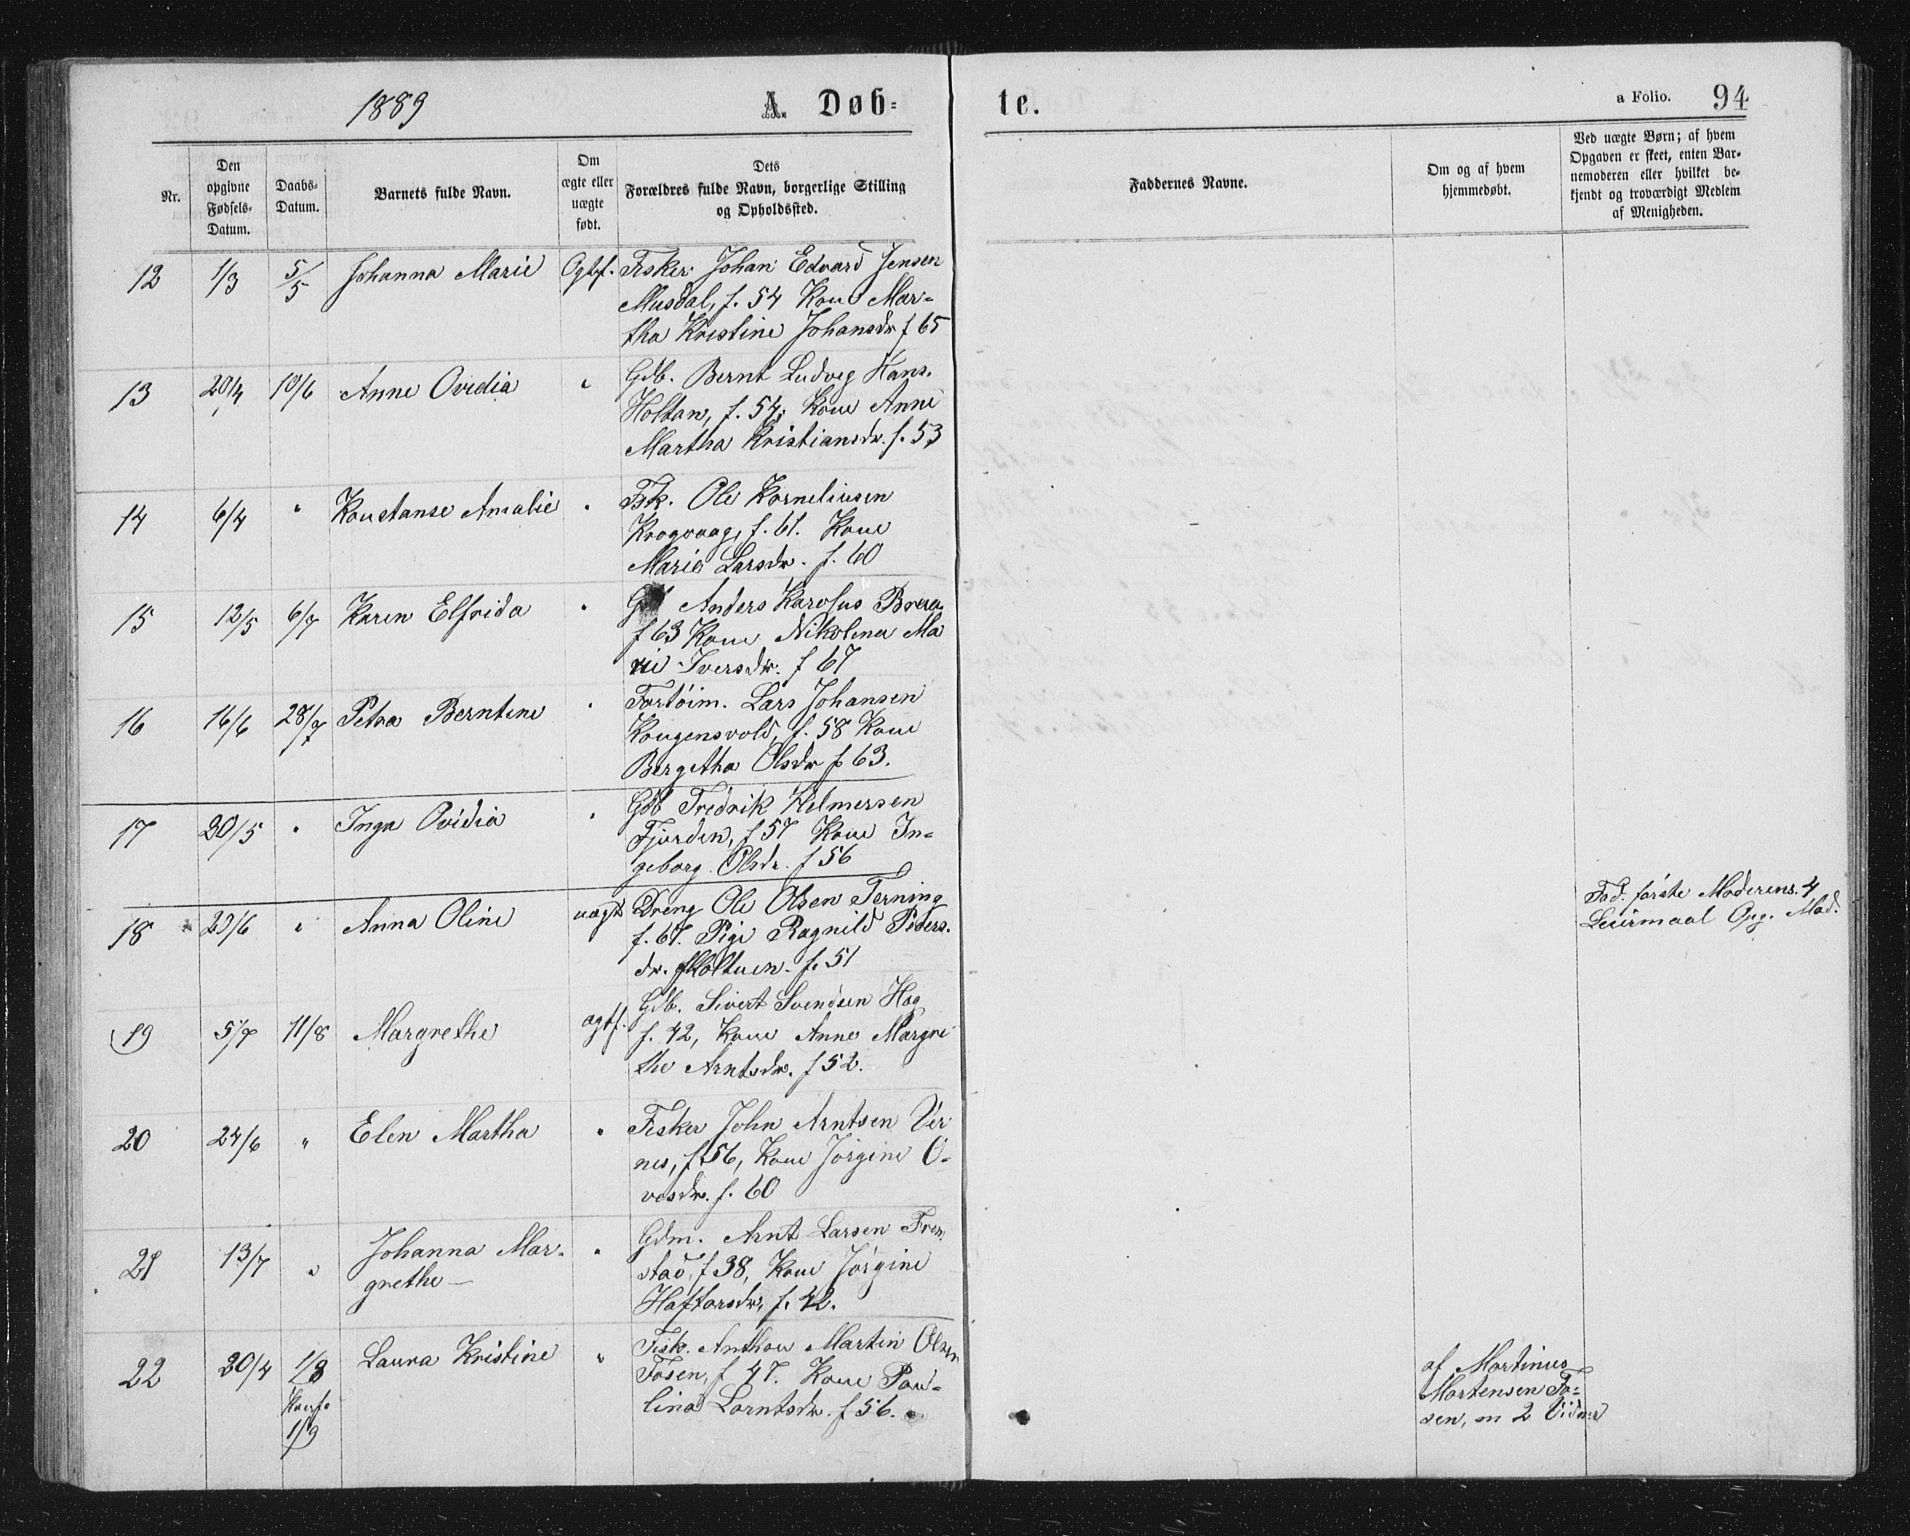 1889
A. Døb-
te.
a Folio. 94
Nr.
Den
opgivne
Fødsels-
Datum.
Daabs-
Datum.
Barnets fulde Navn.
Om
ægte eller
uægte
født.
Dets
Forældres fulde Navn, borgerlige Stilling
og Opholdssted.
Faddernes Navne.
Om og af hvem
hjemmedøbt.
Ved uægte Børn; af hvem
Opgaven er skeet, enten Bar-
nemoderen eller hvilket be-
kjendt og troværdigt Medlem
af Menigheden.
12 1/3 5/5 Johanna Marie Ægtf. Fisker Johan Edvard Jensen
Musdal, f. 54 Kone Mar-
tha Kristine Johansdr f 65
13 20/4 10/6 Anne Ovidia " Gdb. Bernt Ludvig Hans.
Holtan, f. 54, Kone Anne
Martha Kristiansdr. f. 53
14 6/4 " Konstanse Amalie " Fsk. Ole Korneliusen
Krogvaag, f. 61. Kone
Marie Larsdr. f. 60
15 12/5 6/7 Karen Elfrida " Gdb Anders Karolus
f 63 Kone Nikolina Ma
rie Iversdr. f 67
16 16/6 28/7 Petra Berntine " Fortøim. Lars Johansen
Kongensvold, f. 58 Kone
Bergetha Olsdr f 63.
17 20/5 " Inga Ovidia " Gdb Fredrik Hilmersen
Fjorden, f 57 Kone In-
geborg Olsdr. f 56
18 23/6 " Anna Oline uægt Dreng Ole Olsen Terning
f. 67. Pige Ragnild Peders.
dr. Holtuen f. 51
Fad. første Moderens 4
Leiermaal Opg. Mod.
19 5/7 11/8 Margrethe ægtf. Gdb. Sivert Svendsen Hag
f. 42, Kone Anne Margre
the Arntsdr. f 52.
20 24/6 " Elen Martha " Fisker John Arntsen Vir
nes, f. 56, Kone Jørgine O-
vesdr. f. 60
21 13/7 " Johanna Mar- " Gdm. Arnt Larsen Frem
grethe— stad, f 38, Kone Jørgine
Haftorsdr, f. 42.
22 20/4 1/8 Laura Kristine " Fisk. Anthon Martin Olsen
Konf. Fosen, f 47. Kone Pau-
1/9 lina Larntsdr. f 56.
af Martinus
Mortensen Fo-
sen, m 2 Vidner